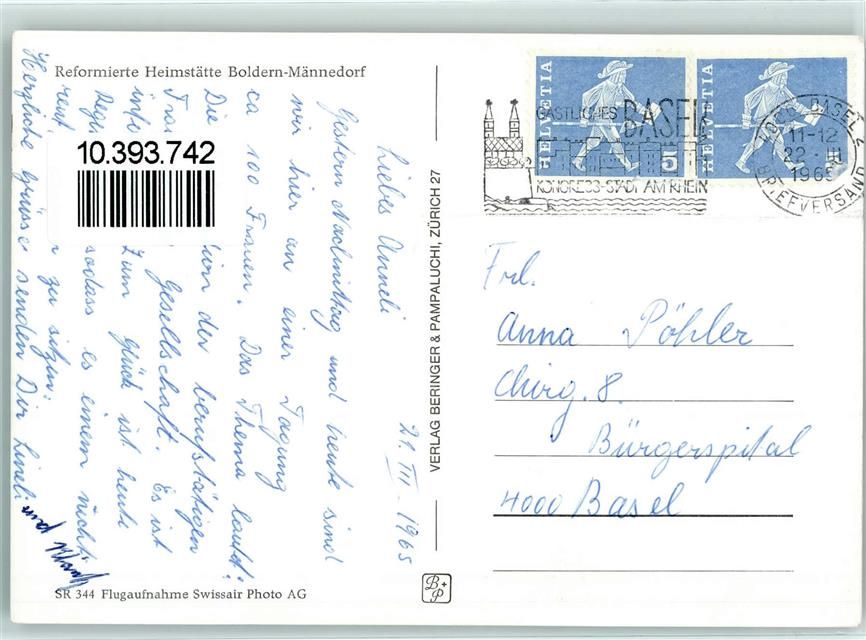 Reformierte Heimstätte Boldern-Männedorf
10.393.742
21. III. 1965
Liebes Anneli
Gestern Nachmittag und heute sind
wir hier an einer Tagung
ca 100 Frauen. Das Thema lautet:
Die der berufstätigen
Gesellschaft. Es ist
Zum Glück ist heute
sodass es einem nicht
zu sitzen.
Herzliche Grüsse senden Dir Lineli
und
SR 344 Flugaufnahme Swissair Photo AG
VERLAG BERINGER & PAMPALUCHI, ZÜRICH 27
B+P
HELVETIA
5
HELVETIA
GASTLICHES BASEL
KONGRESS-STADT AM RHEIN
4000 BASEL
11-12
22. III
1965
BRIEFVERSAND
Frl.
Anna Pöhler
Chirg. 8.
Bürgerspital
4000 Basel